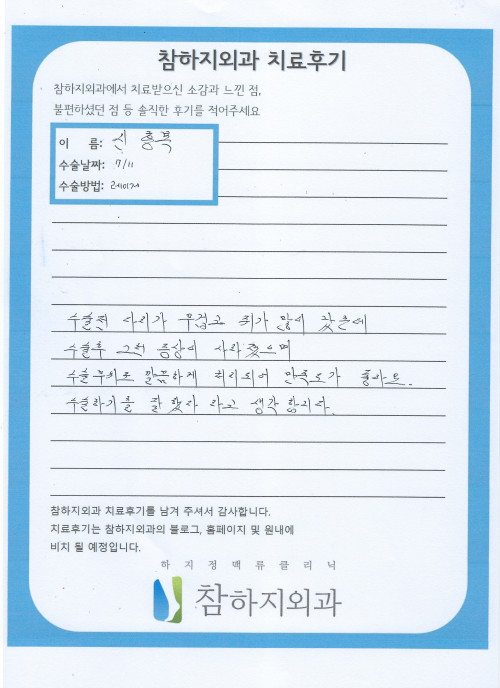 참하지외과 치료후기
참하지외과에서 치료받으신 소감과 느낀 점,
불편하셨던 점 등 솔직한 후기를 적어주세요
이 름: 신
수술날짜: 7/11
수술방법: 레이저
수술전 다리가 무겁고 쥐가 많이 났는데
수술후 그런 증상이 사라졌으며
수술부위도 깔끔하게 처리되어 만족도가 좋아요.
수술하기를 잘 했다 라고 생각 합니다.
참하지외과 치료후기를 남겨 주셔서 감사합니다.
치료후기는 참하지외과의 블로그, 홈페이지 및 원내에
비치 될 예정입니다.
하지정맥류클리닉
참하지외과